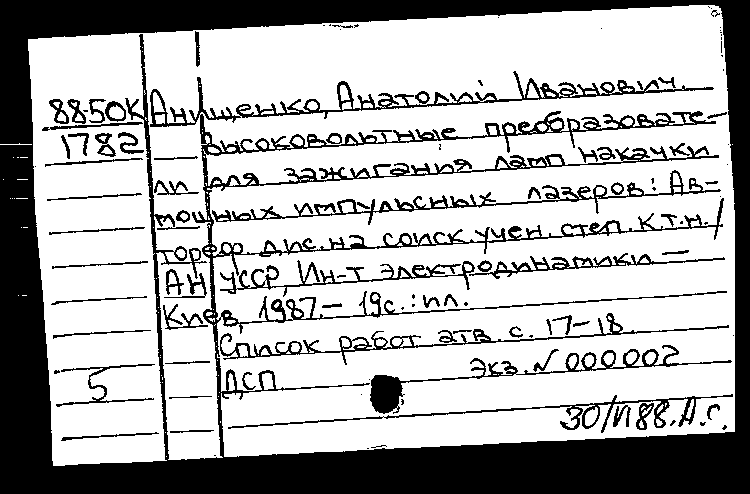 88-50К Анищенко, Анатолий Иванович.
1782 Высоковольтные преобразовате-
ли для зажигания ламп накачки
мощных импульсных лазеров: Ав-
тореф. дис. на соиск. учен. степ. к.т.н. /
АН УССР, Ин-т электродинамики —
Киев, 1987. — 19с.: ил.
Список работ авт. с. 17-18.
5 ДСП Экз. N 000002
30/VI 88. А.С.